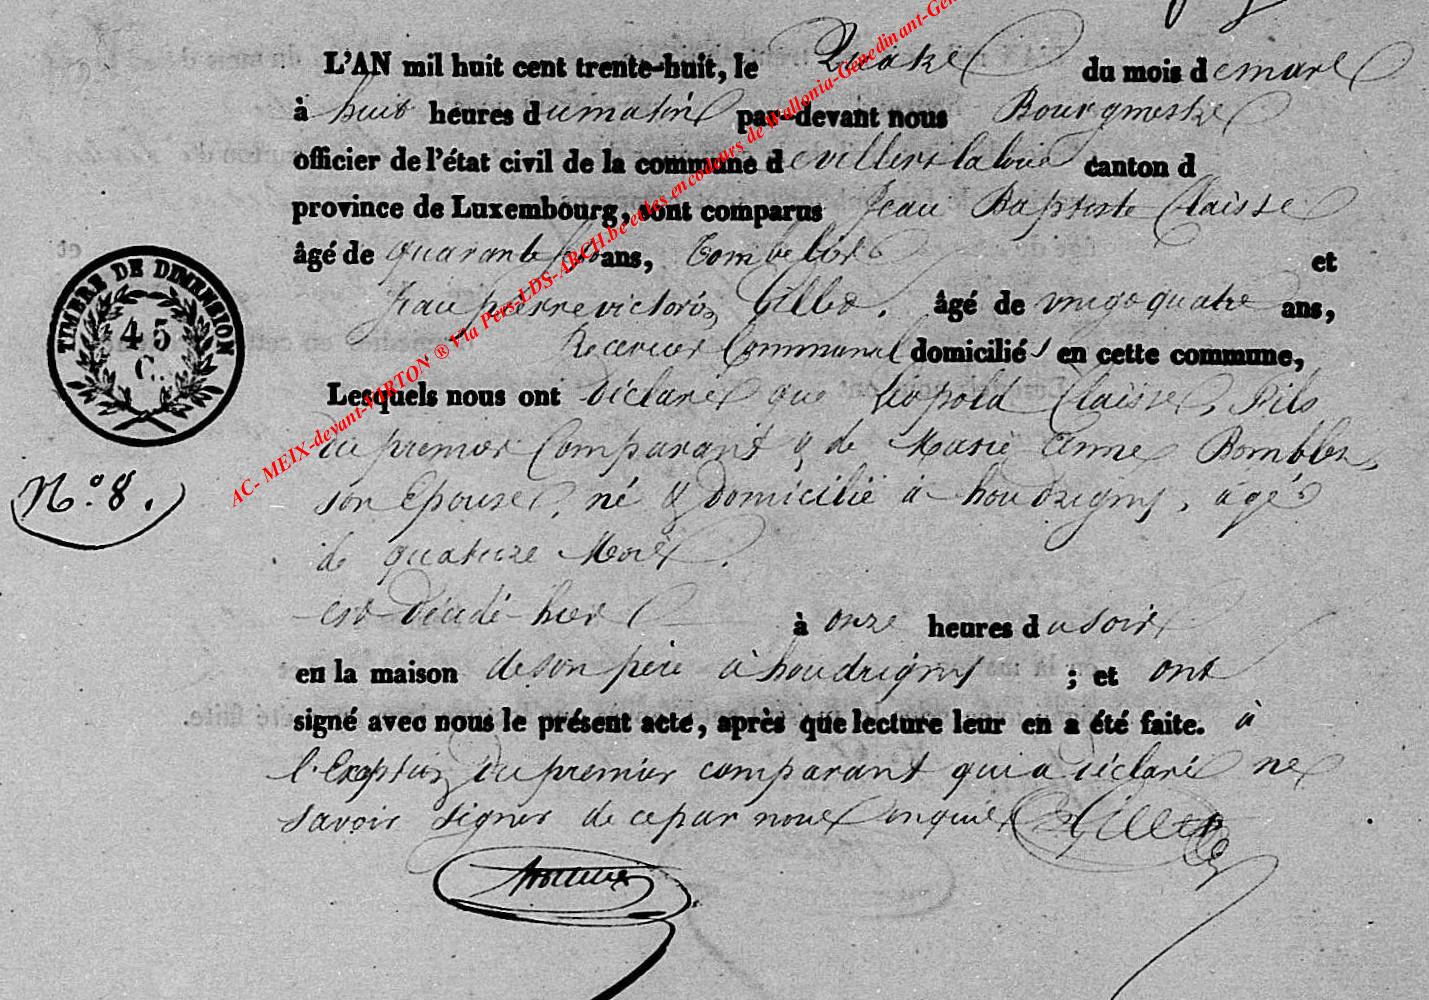 L'AN mil huit cent trente-huit, le Quatre du mois de mars
à huit heures du matin par-devant nous Bourgmestre
officier de l'état civil de la commune de villers la loue canton d
province de Luxembourg, sont comparus Jean Baptiste Claisse
âgé de quarante ans, et
Jean pierre victorin Gillet. âgé de vingt quatre ans,
Receveur Communal domiciliés en cette commune,
Lesquels nous ont déclaré que Léopold Claisse, fils
du premier Comparant & de Marie Anne
son Epouse, né & domicilié à houdrigny, agé
de quatorze Mois.
est décédé hier à onze heures du soir
en la maison de son père à houdrigny ; et ont
signé avec nous le présent acte, après que lecture leur en a été faite. à
l'Exeption du premier comparant qui a déclaré ne
savoir signer de ce par nous enquis Gillet
TIMBRE DE DIMENSION
45
C.
N.° 8.
AC- MEIX-devant-VIRTON ® Via Pers-LDS-ARCH.be et les encodeurs de Wallonia-Genedinant-Gen